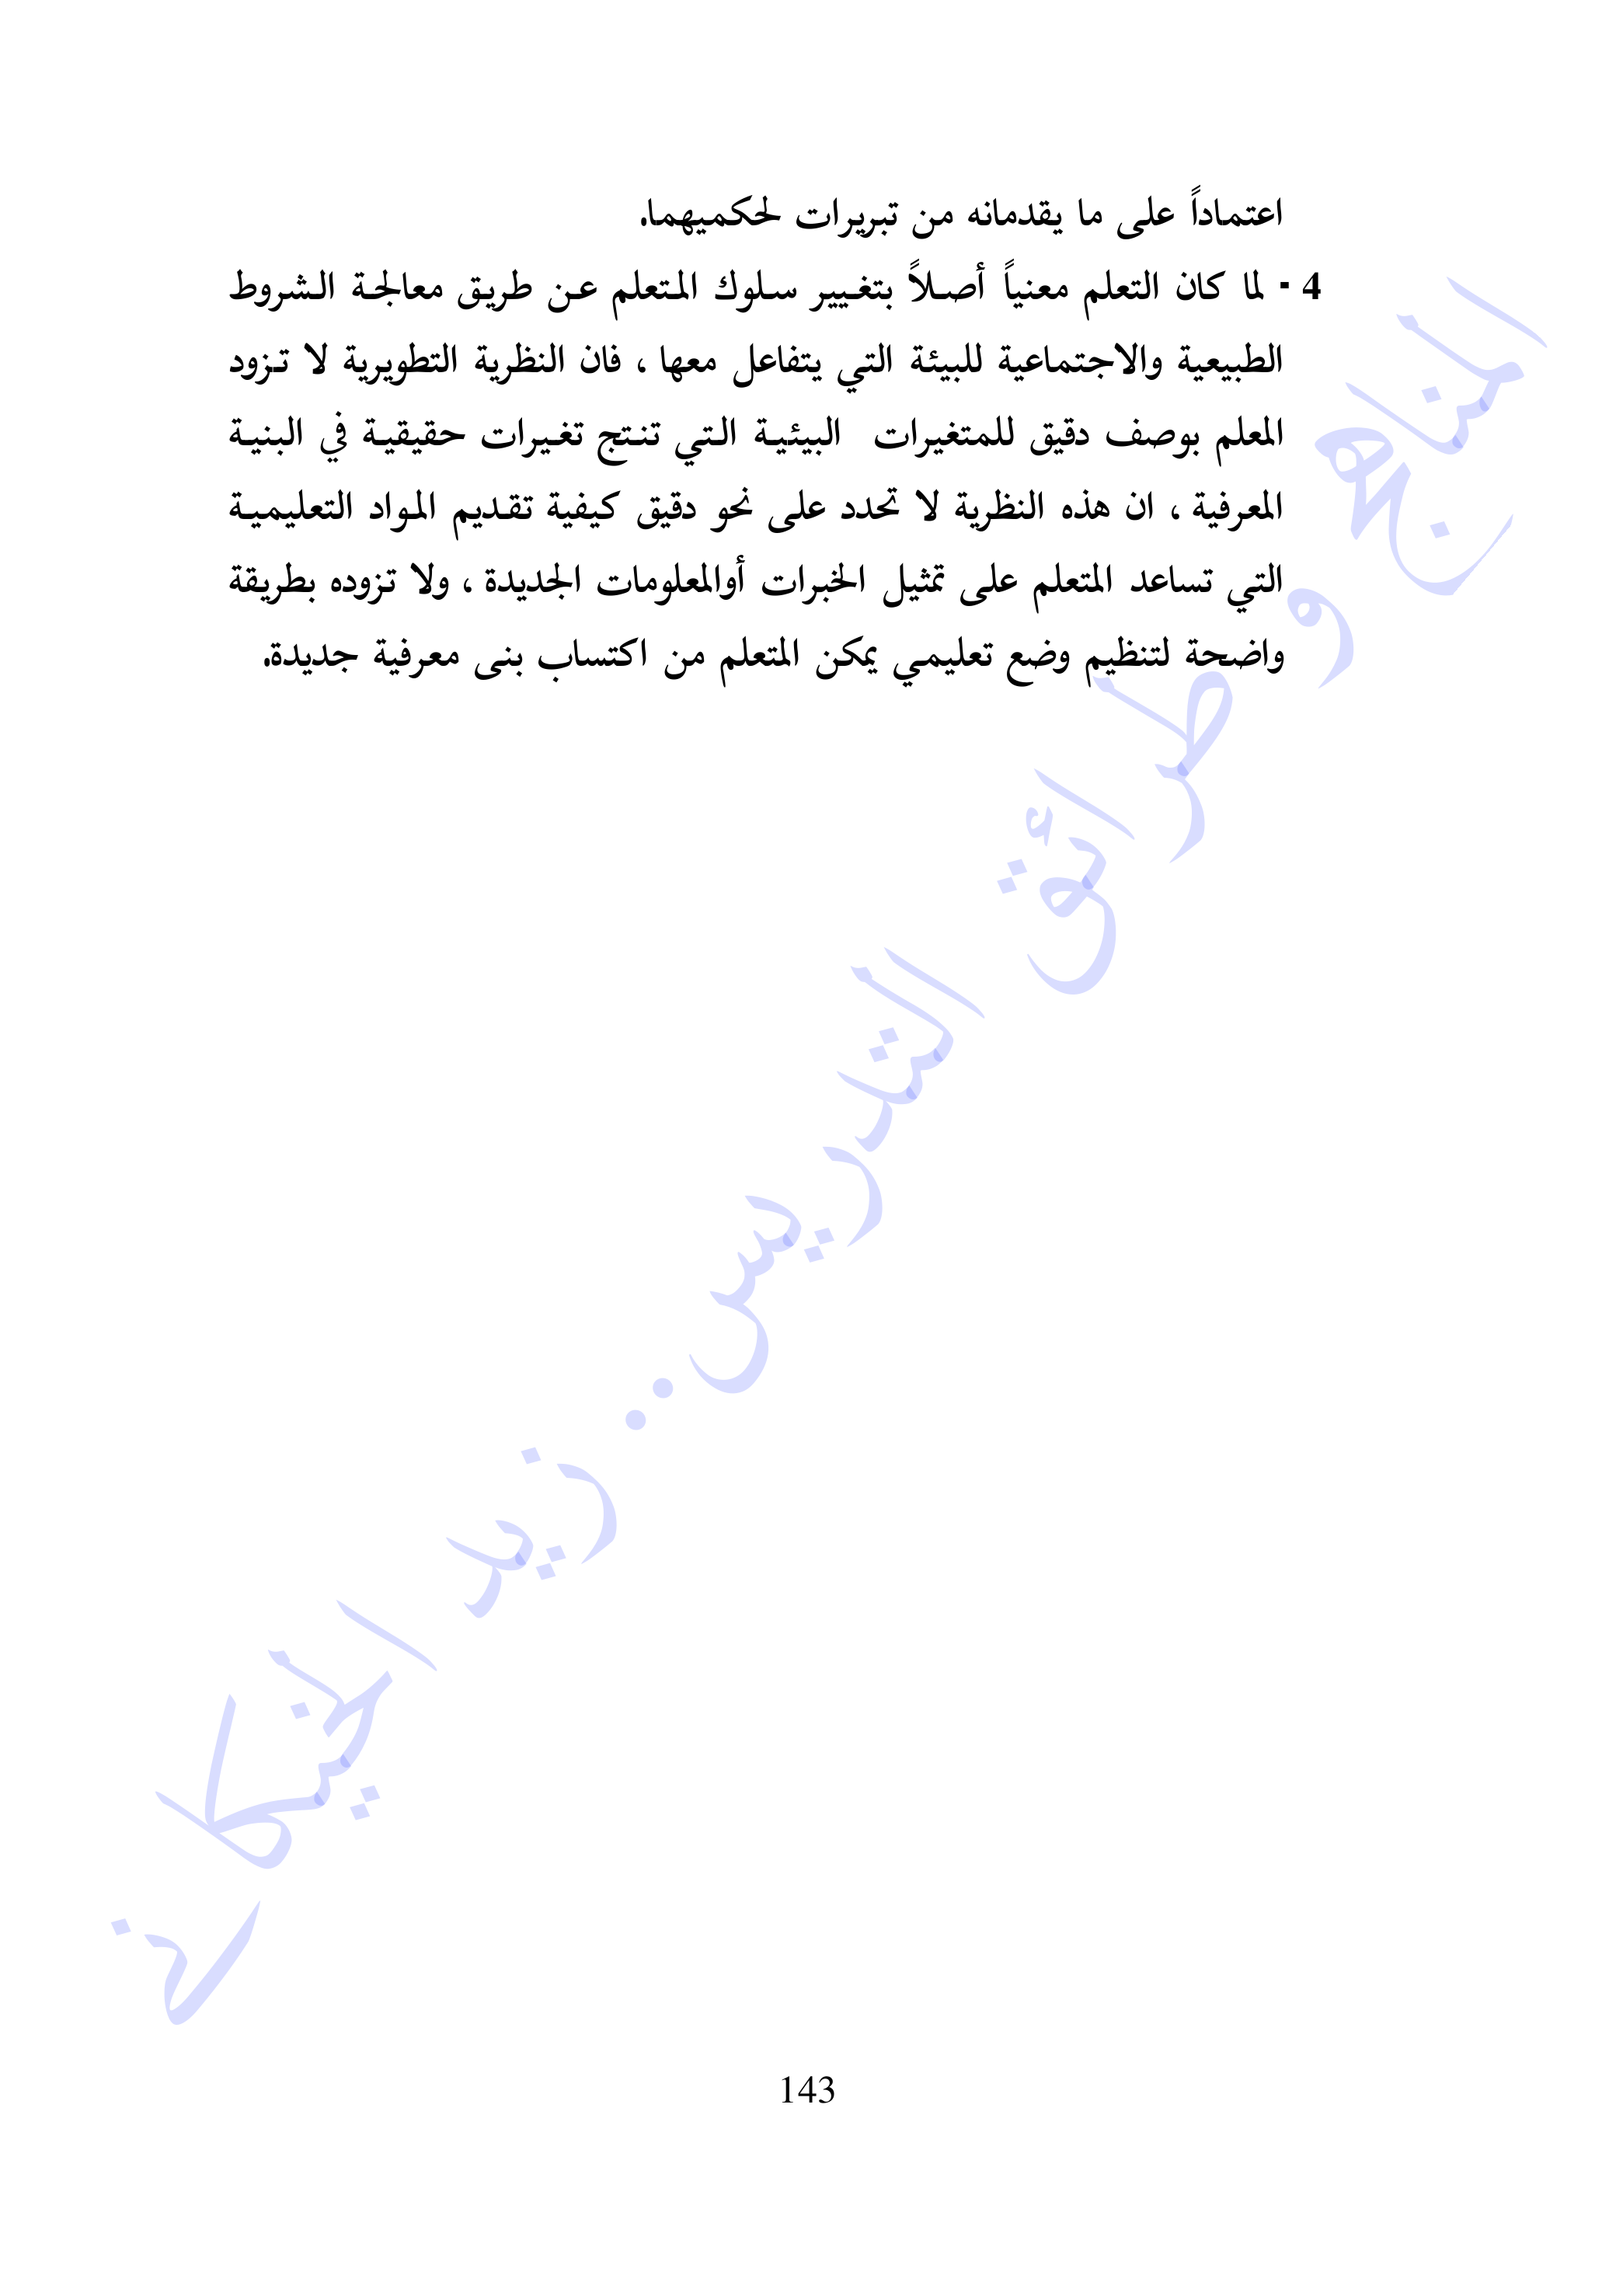 اعتماداً على ما يقدمانه من تبريرات لحكميهما.
4 - لما كان التعلم معنياً أصلاً بتغيير سلوك المتعلم عن طريق معالجة الشروط
الطبيعية والاجتماعية للبيئة التي يتفاعل معها ، فان النظرية التطويرية لا تزود
المعلم بوصف دقيق للمتغيرات البيئية التي تنتج تغيرات حقيقية في البنية
المعرفية ، ان هذه النظرية لا تحدد على نحو دقيق كيفية تقديم المواد التعليمية
التي تساعد المتعلم على تمثيل الخبرات أوالمعلومات الجديدة ، ولا تزوده بطريقة
واضحة لتنظيم وضع تعليمي يمكن المتعلم من اكتساب بنى معرفية جديدة.
المناهج و طرائق التدريس.. زيد الخيكاني
143